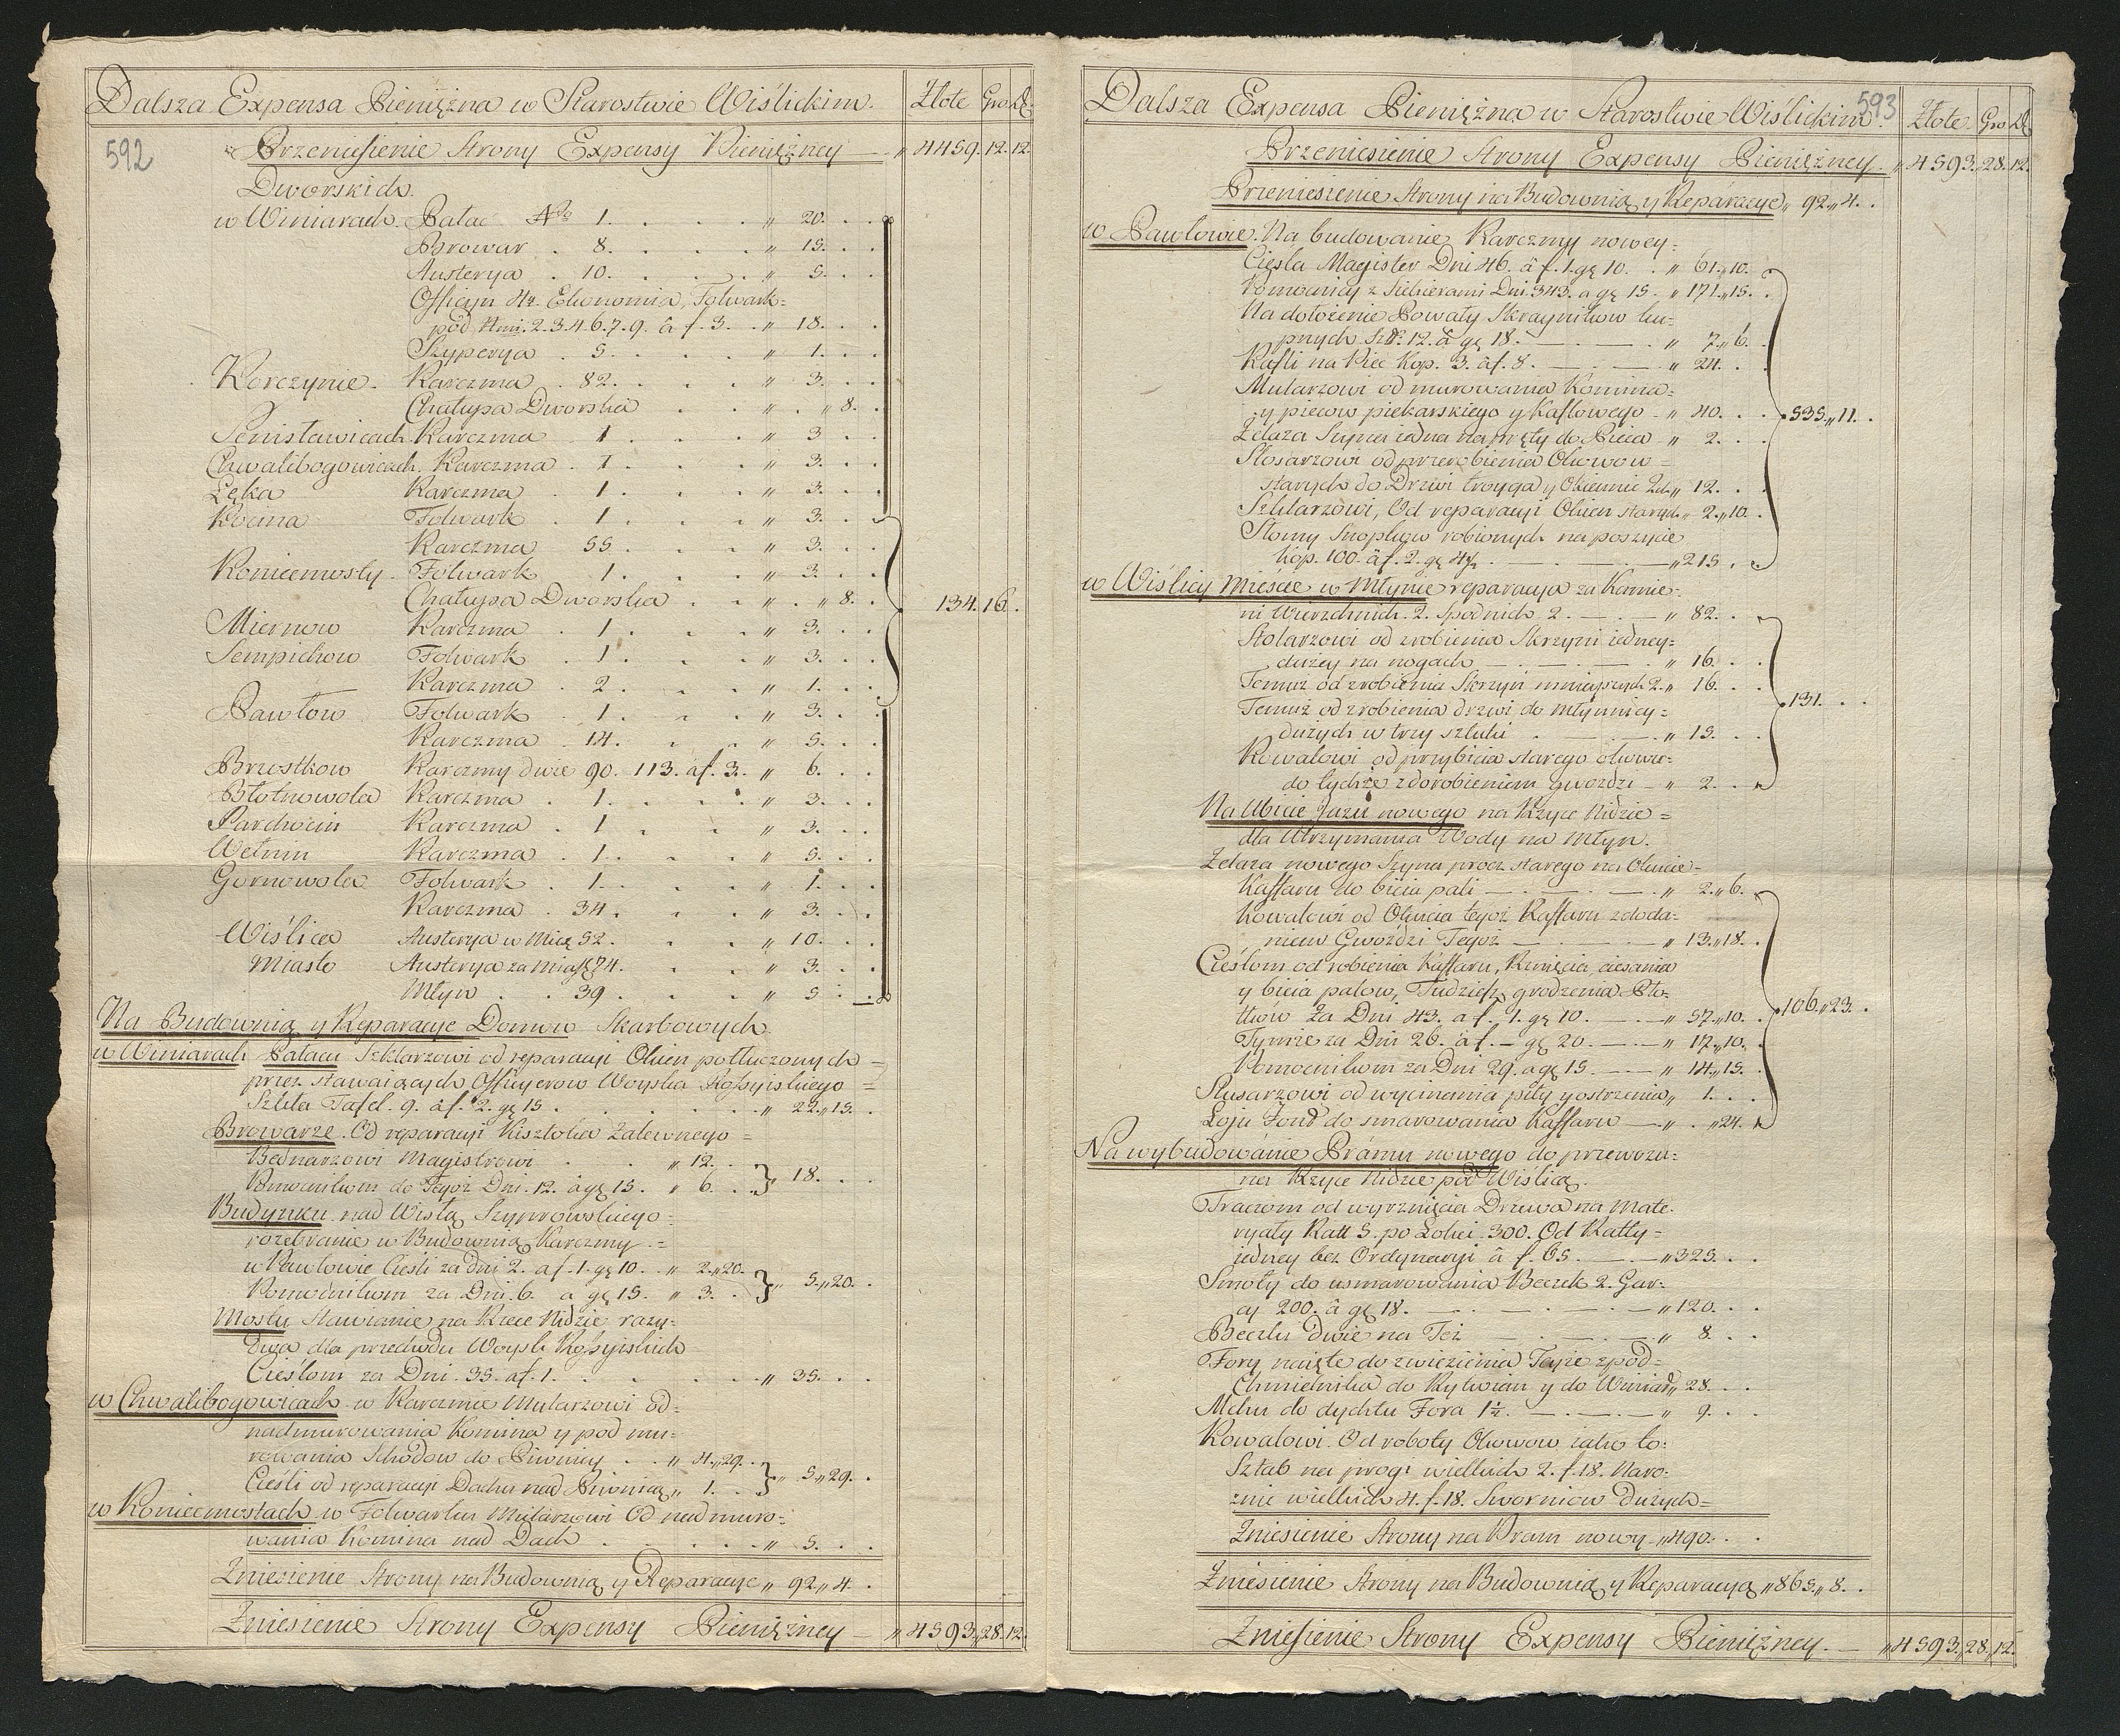 Dalsza Expensa Pieniężna w Starostwie Wiślickim. Złote Gro. D.
592
Przeniesienie Strony Expensy Pieniężney „ 4459. 12. 12.
Dworskich.
w Winiarach. Pałac No 1. „ 20.
Browar . 8. „ 15.
Austerya . 10. „ 5.
Officyn 4r. Ekonomia, Folwark=
pod Nmi. 2. 3. 4. 6. 7. 9. â f. 3. „ 18.
Szyperya . 5. „ 1.
Korczynie. Karczma . 82. „ 3.
Chałupa Dworska „ . „ 8.
Senisławicach. Karczma 1 „ 3
Chwalibogowicach. Karczma . 7. „ 3.
Łęka Karczma 1. „ 3.
Kocina Folwark . 1. „ 3.
Karczma 55. „ 3.
Koniecmosty. Folwark 1. „ 3.
Chałupa Dworska „ . „ 8. 134. 16.
Miernow Karczma . 1. „ 3.
Sempichow Folwark . 1. „ 3.
Karczma . 2. „ 1.
Pawłow Folwark . 1. „ 3.
Karczma . 14. „ 5.
Brzostkow Karczmy dwie 90. 113. â f. 3. „ 6.
Błotnowola Karczma . 1. „ 3.
Parchocin Karczma . 1 „ 3.
Wełnin Karczma . 1. „ 5.
Gornowola Folwark . 1. „ 1.
Karczma . 34. „ 3.
Wiślica Austerya w Mieś. 52. „ 10.
Miasto Austerya za Miast. 74. „ 3.
Młyn . . 39. „ 5
Na Budownią y Reparacye Domow Skarbowych
w Winiarach Pałacu Szklarzowi od reparacyi Okien potłuczonych=
przez stawaiących Officyerow Woyska Rossyiskiego=
Szkła Tafel. 9. â f. 2. gę 15. „ 22. „ 15.
Browarze. Od reparacyi Kisztoka Zalewnego=
Bednarzowi Magistrowi „ 12.
Pomocnikom do Tegoż Dni. 12. â gę 15. „ 6. 18.
Budynku nad Wisłą Szyprowskiego=
rozebranie w Budownią Karczmy=
w Pawłowie Cieśli za dni 2. â f. 1. gę 10. „ 2. „ 20.
Pomocnikom za Dni. 6. a gę 15. „ 3. „ 5. „ 20.
Mostu stawianie na Rzece Nidzie razy=
dwa dla przechodu Woysk Rossyiskich
Cieślom za Dni. 35. â f. 1. „ 35.
w Chwalibogowicach w Karczmie Mularzowi od=
nadmurowania Komina y pod mu=
rowania Schodow do Piwnicy „ 4. „ 29.
Cieśli od reparacyi Dachu nad Piwnicą „ 1. „ 5. „ 29.
w Koniecmostach w Folwarku Mularzowi Od nadmuro=
wania Komina nad Dach „ 5.
Zniesienie Strony na Budownią y Reparacye „ 92. „ 4.
Zniesienie Strony Expensy Pieniężney „ 4593. 28. 12.
Dalsza Expensa Pieniężna w Starostwie Wiślickim. Złote. Gro. D.
593
Przeniesienie Strony Expensy Pieniężney. „ 4593. 28. 12.
Przeniesienie Strony na Budownią y Reparacye „ 92. „ 4.
w Pawłowie. Na budowanie Karczmy nowey=
Cieśla Magister Dni 46. â f. 1. gę 10. „ 61. „ 10.
Pomocnicy z Siekierami Dni. 343. a gę 15. „ 171. „ 15.
Na dołożenie Powały Skraynikow ku=
pnych Szt. 12. â gę 18. „ 7. „ 6.
Kafli na Piec Kop. 3. â f. 8. „ 24.
Mularzowi od murowania Komina=
y piecow piekarskiego y Kaflowego „ 40. 535. „ 11.
Żelaza Szyna iedna na pręty do Pieca „ 2.
Slosarzowi od przerobienia Okowow=
starych do Drzwi troyga y Okiennic „ 12.
Szklarzowi, Od reparacyi Okien starych „ 2. „ 10.
Słomy Snopkow robionych na poszycie
kop. 100. â f. 2. gę 4½ „ 215.
w Wiślicy Mieście w Młynie reparacya za Kamie=
ni Wierzchnich. 2. Spodnich 2. „ 82.
Stolarzowi od zrobienia Skrzyni iedney=
dużey na nogach „ 16.
Temuż od zrobienia Skrzyń mnieyszych 2. „ 16.
Temuż od zrobienia drzwi do Młynnicy= 131.
dużych w trzy sztuki „ 15.
Kowalowi od przybicia starego okowu=
do tychże z dorobieniem gwozdzi „ 2.
Na Ubicie Jazu nowego na Rzyce Nidzie=
dla Utrzymania Wody na Młyn.
Żelaza nowego Szyna procz starego na Okucie=
Kaffaru do bicia pali „ 2. „ 6.
Kowalowi od Okucia tegoż Kaffaru z doda=
niem Gwoździ Tegoż „ 13. „ 18.
Cieślom od robienia Kaffaru, Rznięcia, ciesania
y bicia palow, Tudzież grodzenia Pło=
tkow Za Dni 43. â f. 1. gę 10. „ 57. „ 10. 106. „ 23.
Tymże za Dni 26. â f. – gę 20. „ 17. „ 10.
Pomocnikom za Dni 29. a gę 15. „ 14. „ 15.
Slusarzowi od wycinania piły y ostrzenia „ 1.
Łoju Font do smarowania Kaffaru „ . „ 24.
Na wybudowanie Pramu nowego do przewozu=
na Rzyce Nidzie pod Wiślicą.
Traczom od wyrznięcia Drzewa na Mate=
ryały Katt 5. po Łokci. 300. Od Katty=
iedney bez Ordynaryi â f. 65. „ 325.
Smoły do usmarowania Beczek 2. Gar=
cy 200. â gę 18. „ 120.
Beczki dwie na Też „ 8.
Fory naięte do zwiezienia Teyże z pod=
Chmielnika do Rytwian y do Winiar „ 28.
Mchu do dychtu Fora 1½. „ 9.
Kowalowi. Od roboty Okowow, iako to:
Sztab na progi wielkich 2. f. 18. Naro=
żnic wielkich 4. f. 18. Sworniow Dużych=
Zniesienie Strony na Pram nowy „ 490.
Zniesienie Strony na Budownią y Reparacyą „ 865. „ 8.
Zniesienie Strony Expensy Pieniężney. „ 4593. „ 28. „ 12.